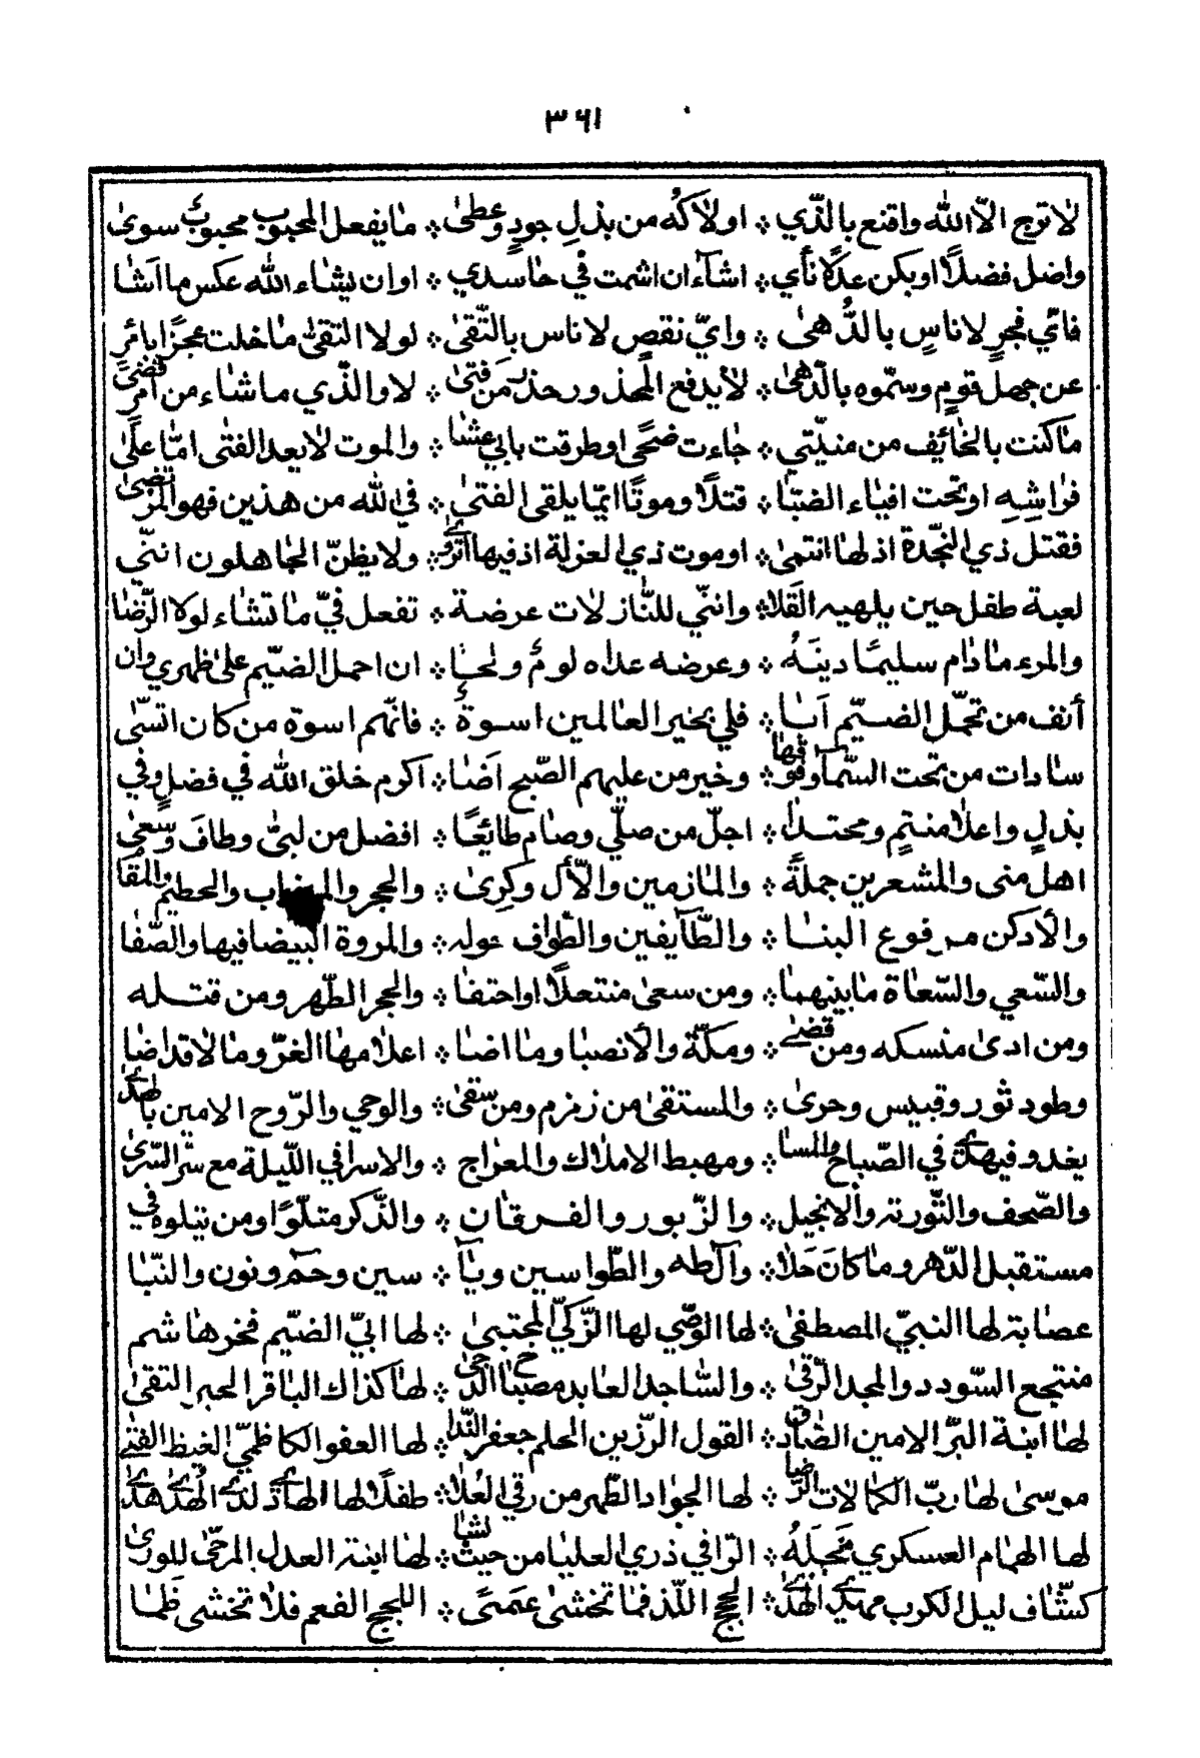 ٣٦١
لا ترج الّا الله واقنع بالّذي ※ اولاكه من بذل جودٍ وعطىٰ ※ ما يفعل المحبوب محبوب سوىٰ
واضل فضلًا او يكن عدلًا نأي ※ اشآء ان اشمت في حاسدي ※ او ان يشاء الله عكس ما اشا
فايّ فجرٍ لاناسٍ بالدُّهىٰ ※ وايّ نقصٍ لاناس بالتّقىٰ ※ لولا التقىٰ ما خلت عجزًا بامرٍ
عن جهل قومٍ وسمّوه بالدّهىٰ ※ لا يدفع المحذور حذر من فتىٰ ※ لا والّذي ما شاء من امرٍ قضىٰ
ما كنت بالخائف من منيّتي ※ جاءت ضحًى او طرقت بابي عشا ※ والموت لا يعد الفتى امّا علىٰ
فراشِهِ او تحت افياء الضبّا ※ قتلًا وموتًا ايّما يلقى الفتىٰ ※ في الله من هذين فهو المرتضىٰ
فقتل ذي النجّدة اذ لها انتمىٰ ※ او موت ذي العزلة اذ فيها اثرىٰ ※ ولا يظنّ الجاهلون انّني
لعبة طفل حين يلهيه القَلا ※ وانّني للنّازلات عرضة ※ تفعل فيّ ما تشاء لولا الرّضا
والمرء ما دام سليمًا دينَهُ ※ وعرضه عداه لومٌ ولحا ※ ان احمل الضيّم علىٰ ظهري وان
أنف من تحمّل الضيّم آبا ※ فلي بخير العالمين اسوةٌ ※ فانّهم اسوة من كان اتسّى
سادات من تحت السّمآ وفوقها ※ وخير من عليهم الصّبح اَضا ※ اكرم خلق الله في فضلٍ وفي
بذلٍ واعلا منتمٍ ومحتدا ※ اجلّ من صلّي وصام طائعًا ※ افضل من لبىّٰ وطافَ وسعىٰ
اهل منى والمشعرين جملةً ※ والمازمين والأّل وكرىٰ ※ والحجر والميزاب والحطيم والمقا
والأركن مرفوع البنا ※ والطّآيفين والطّواف حوله ※ والمروة البيضا فيها والصّفا
والسّعي والسّعاة ما بينهما ※ ومن سعىٰ منتعلًا او احتفا ※ والحجر الطّهر ومن قتله
ومن ادىٰ منسكه ومن قضىٰ ※ ومكّة والأنصبا وما اضا ※ اعلامها الغرّ وما لاقد اضا
وطود ثور وقبيس وحرىٰ ※ والمستقىٰ من زمزم ومن سقىٰ ※ والوحي والرّوح الامين بالهدىٰ
يغدو فيهدىٰ في الصّباح والمسا ※ ومهبط الاملاك والمعراج ※ والاسرا في اللّيلة مع سرّ السّرىٰ
والصّحف والتّورية والانجيل ※ والزّبور والفرقان ※ والذّكر متلّوًا ومن يتلوه في
مستقبل الدّهر وما كانَ خَلا ※ وآل طه والطّواسين ويآ ※ سين وحمٓ ونون والنّبا
عصابة لها النبيّ المصطفىٰ ※ لها الوصّي لها الزّكيّ المجتبىٰ ※ لها ابيّ الضيّم فخر هاشم
منتجع السّودد والمجد الرّقىٰ ※ والسّاجد العابد مصباح الدّجىٰ ※ لها كذاك الباقر الحبر التقىٰ
لها ابنة البرّ الامين الصّادق ※ القول الرّزين الحلم جعفر النّدا ※ لها العفو الكاظميّ الغيظ الفتىٰ
موسىٰ لها ربّ الكمالات الرّضا ※ لها الجواد الطّهر من رقي العُلا ※ طفلًا لها الهادي لدىٰ الهُدىٰ هدىٰ
لها الهمام العسكري نجلهُ ※ الرّاقي ذري العليا من حيث يشا ※ لها ابنه العدل المرجّىٰ للورىٰ
كشّاف ليل الكرب مهدي الهُدىٰ ※ الحجج اللّذ فما تخشىٰ عَمَىً ※ اللجج الفعم فلا تخشى ظما